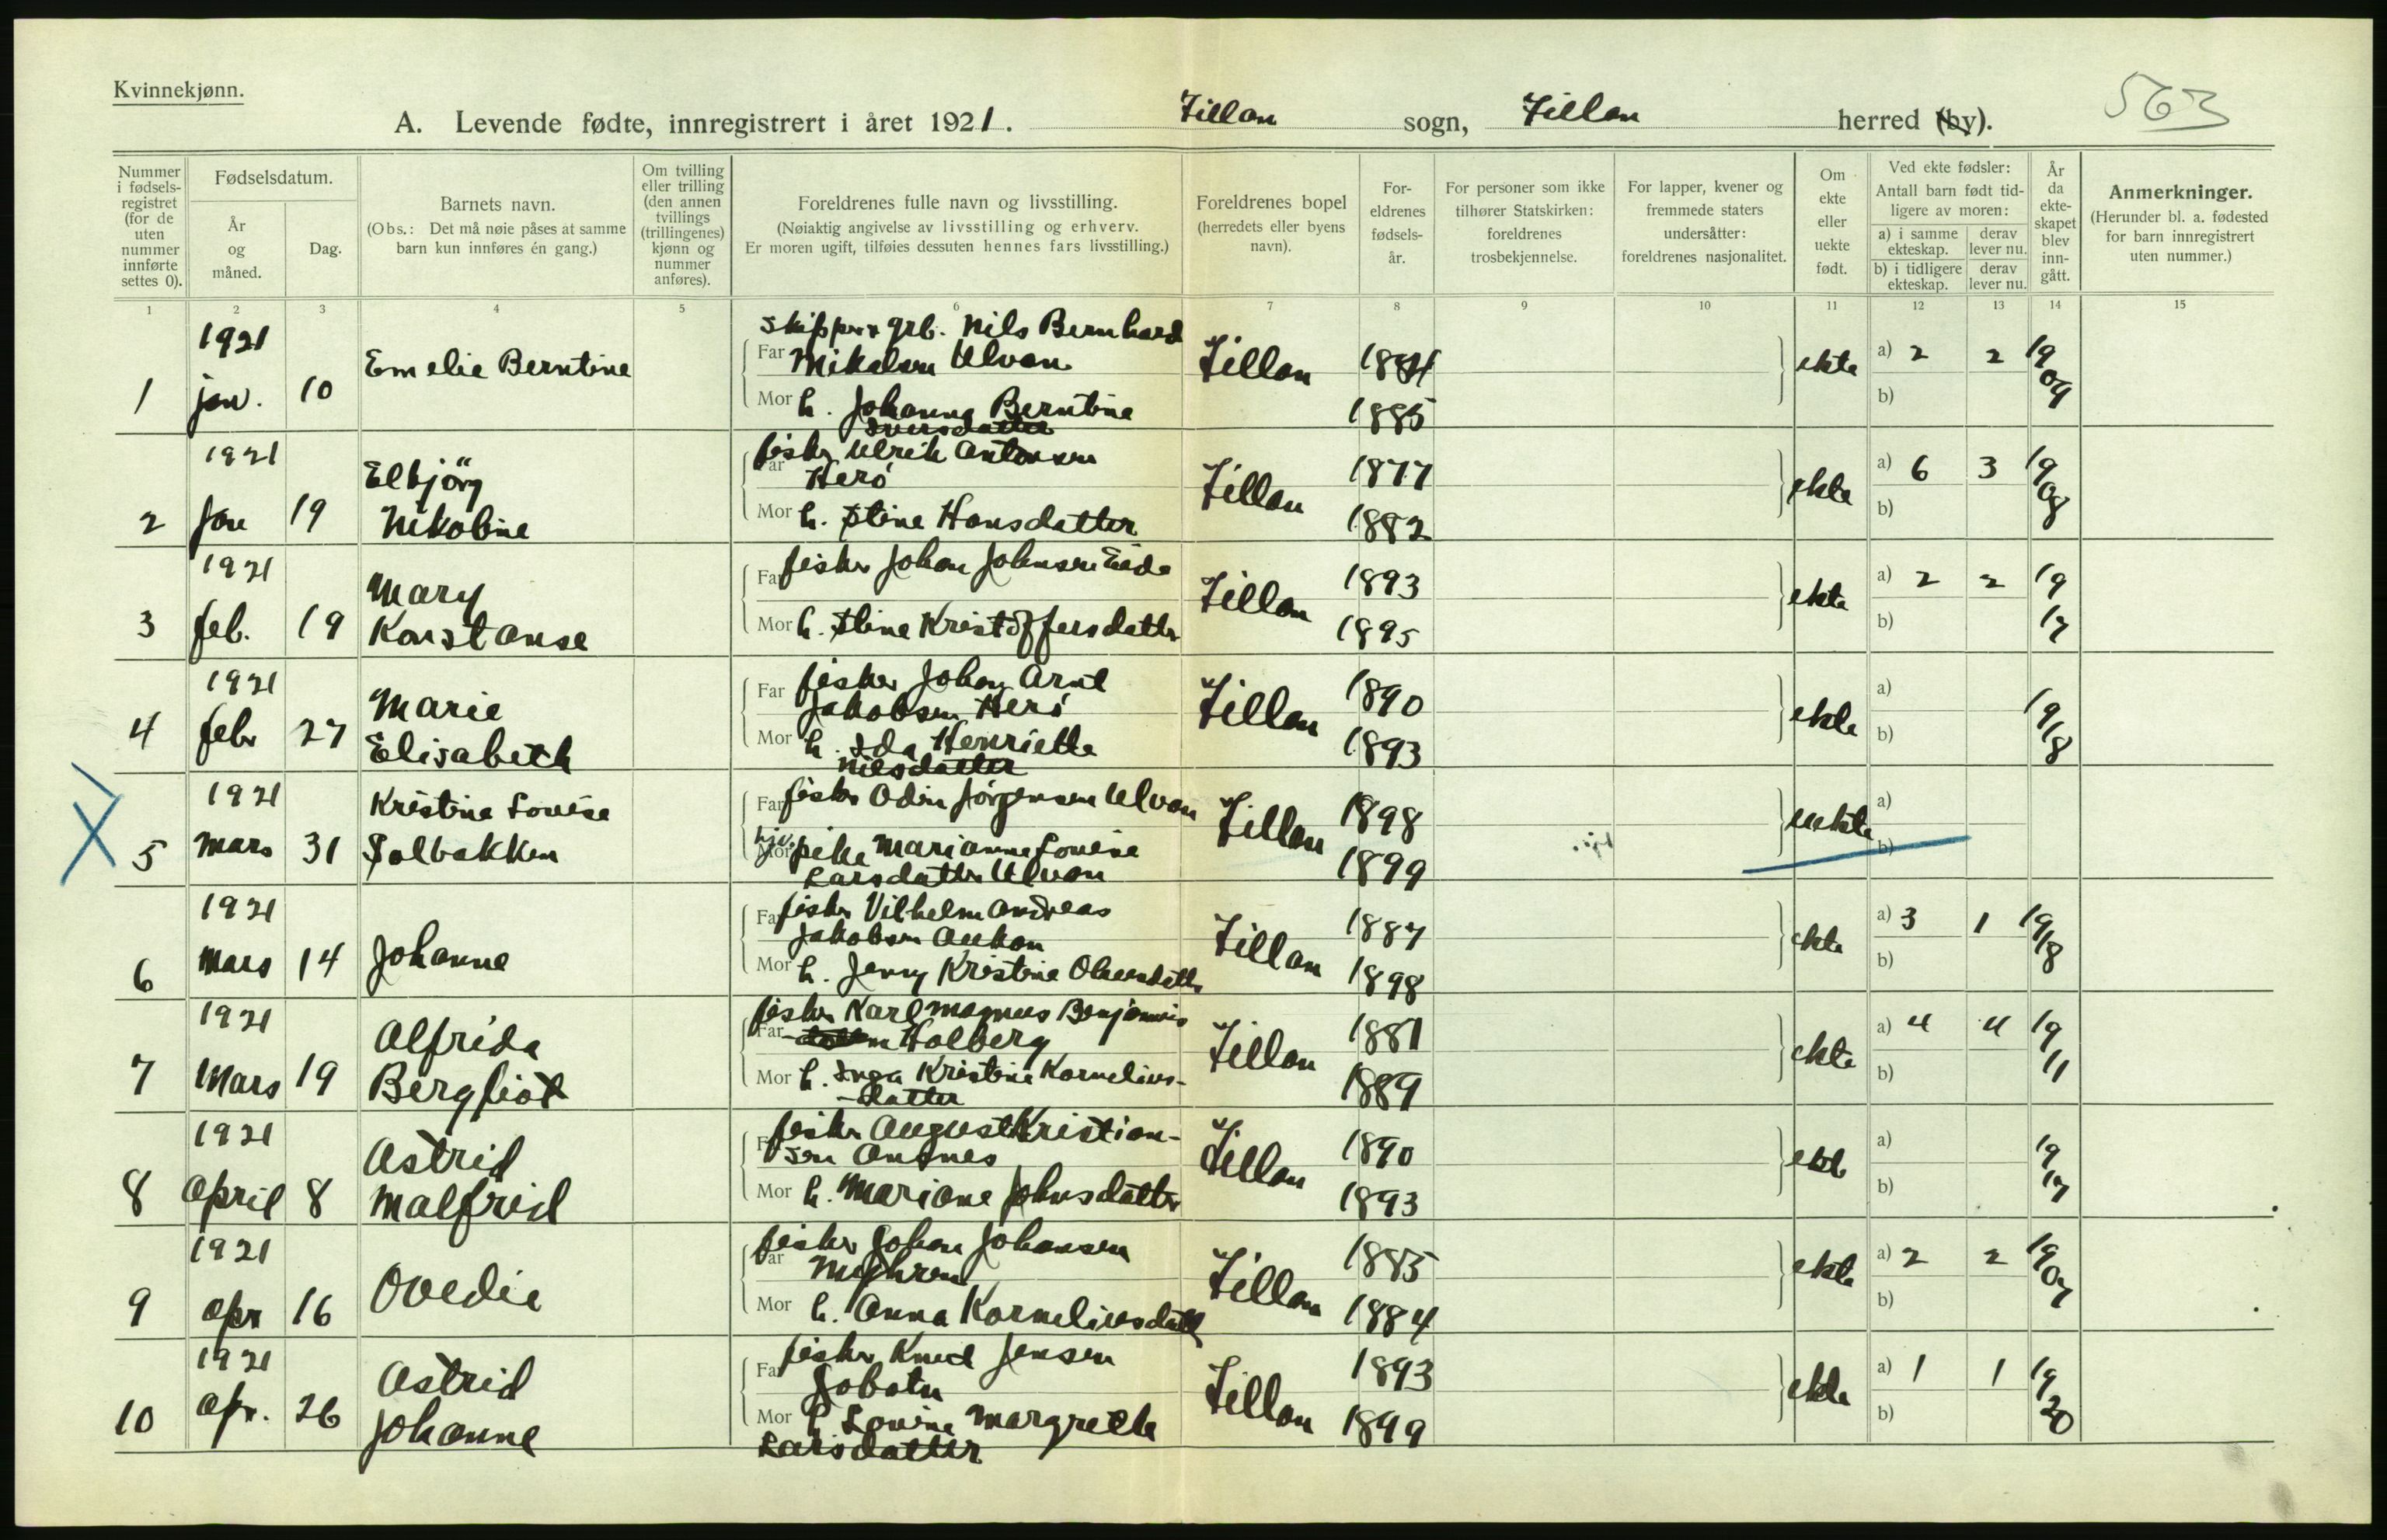 Kvinnekjønn.
563
A. Levende fødte, innregistrert i året 1921. Fillan sogn, Fillan herred (by).
Nummer i fødsels-registret (for de uten nummer innførte settes 0).
Fødselsdatum.
År og måned.
Dag.
Barnets navn.
(Obs.: Det må nøie påses at samme barn kun innføres én gang.)
Om tvilling eller trilling (den annen tvillings (trillingenes) kjønn og nummer anføres).
Foreldrenes fulle navn og livsstilling.
(Nøiaktig angivelse av livsstilling og erhverv.
Er moren ugift, tilføies dessuten hennes fars livsstilling.)
Foreldrenes bopel
(herredets eller byens navn).
For-eldrenes fødsels-år.
For personer som ikke tilhører Statskirken: foreldrenes trosbekjennelse.
For lapper, kvener og fremmede staters undersåtter: foreldrenes nasjonalitet.
Om ekte eller uekte født.
Ved ekte fødsler:
Antall barn født tid-ligere av moren:
a) i samme ekteskap.
derav lever nu.
b) i tidligere ekteskap.
derav lever nu.
År da ekte-skapet blev inn-gått.
Anmerkninger.
(Herunder bl. a. fødested for barn innregistrert uten nummer.)
1 2 3 4 5 6 7 8 9 10 11 12 13 14 15
1921 skipper grb. Nils Bernhard
Emelie Berntine Far Mikalsen Ulvan Fillan 1884 ekte a) 2 2 1909
1 jan. 10 Mor h. Johanna Berntine 1885 b)
Iversdatter
1921 Elbjörg fisker Ulrik Antonsen 1877 a) 6 3 1908
Far Herö Fillan ekte
2 jan 19 Nikoline Mor h. Stine Hansdatter 1882 b)
1921 Mary Far fisker Johan Johnsen Eide Fillan 1893 ekte a) 2 2 1917
3 feb. 19 Konstanse Mor h. Stine Kristoffersdatter 1895 b)
1921 Marie Far fisker Johan Arnt 1890 a) 1918
Jakobsen Herö Fillan ekte
4 febr 27 Elisabeth Mor h. Ida Henriette 1893 b)
Nilsdatter
1921 Kristine Lovise Far fisker Odin Jörgensen Ulvan Fillan 1898 uekte a)
5 mars 31 Solbakken Mor hjv. pike Marianne Lovise 1899 b)
Larsdatter Ulvan
1921 Far fisker Vilhelm Andreas 1887 a) 3 1 1918
Johanne Jakobsen Aukan Fillan ekte
6 mars 14 Mor h. Jenny Kristine Olausdatter 1898 b)
1921 Alfrida fisker Karl Magnus Benjamins 1881 a) 4 4 1911
Far Holberg Fillan ekte
7 Mars 19 Bergliot Mor h. Inga Kristine Kornelius- 1889 b)
datter
1921 Astrid Far fisker August Kristian- 1890 a) 1917
sen Antnes Fillan ekte
8 April 8 Malfrid Mor h. Mariane Johnsdatter 1893 b)
1921 fisker Johan Johansen 1885 a) 2 2 1907
Ovedie Far Fillan ekte
9 apr 16 Mor h. Anna Korneliusdatt 1884 b)
1921 Astrid Far fisker Knut Jensen 1893 a) 1 1 1920
Fillan ekte
10 apr. 26 Johanne Mor h Lovine Margrethe 1899 b)
Larsdatter